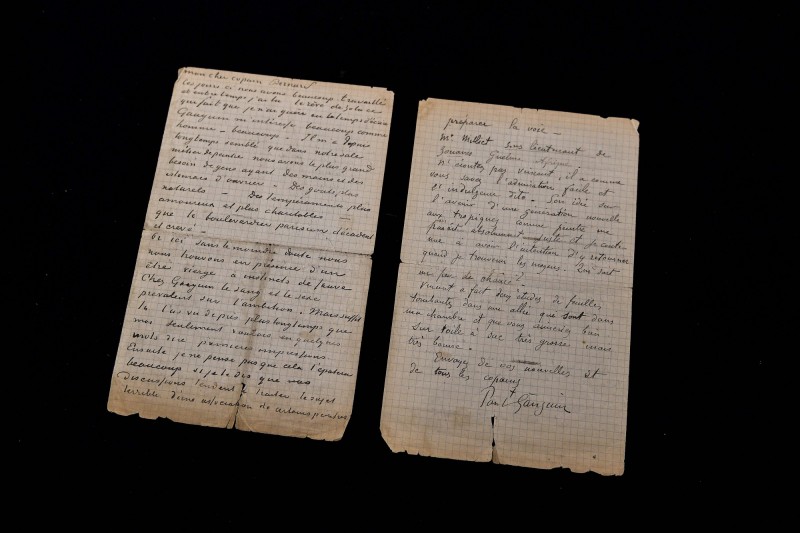 mon cher copain Bernard
Ces jours ci nous avons beaucoup travaillé
et entretemps j'ai lu le rêve de Zola ce
qui fait que je n'ai guère eu le temps d'écrire
Gauguin m'intéresse beaucoup comme
homme - beaucoup - Il m'a depuis
longtemps semblé que dans notre sale
métier de peintre nous avons le plus grand
besoin de gens ayant des mains et des
estomacs d'ouvrier - Des gouts plus
naturels - Des tempéraments plus
amoureux et plus charitables -
que le boulevardier parisien décadent
et crevé -
Or ici sans le moindre doute nous
nous trouvons en présence d'un
être vierge à instincts de fauve
Chez Gauguin le sang et le sexe
prevalent sur l'ambition. Mais suffit
tu l'as vu de près plus longtemps que
moi seulement voulais en quelques
mots dire premières impressions.
Ensuite je ne pense pas que cela t'epatera
beaucoup si je te dis que nos
discussions tendent à traiter le sujet
terrible d'une association de certains peintres
preparer la voie -
Mr Milliet sous lieutenant de
zouaves Guelma Afrique
N'ecoutez pas Vincent, il a comme
vous savez l'admiration facile et
l' indulgence dito. - Son idée sur
l'avenir d'une generation nouvelle
aux tropiques comme peintre me
parait absolument juste et je conti-
nue à avoir l'intention d'y retourner
quand je trouverai les moyens. Qui sait
un peu de chance?
Vincent a fait deux études de feuilles
tombantes dans une allée qui sont dans
ma chambre et que vous aimeriez bien
Sur toile à sac très grosse mais
très bonne.
Envoyez de vos nouvelles et
de tous les copains
Paul Gauguin